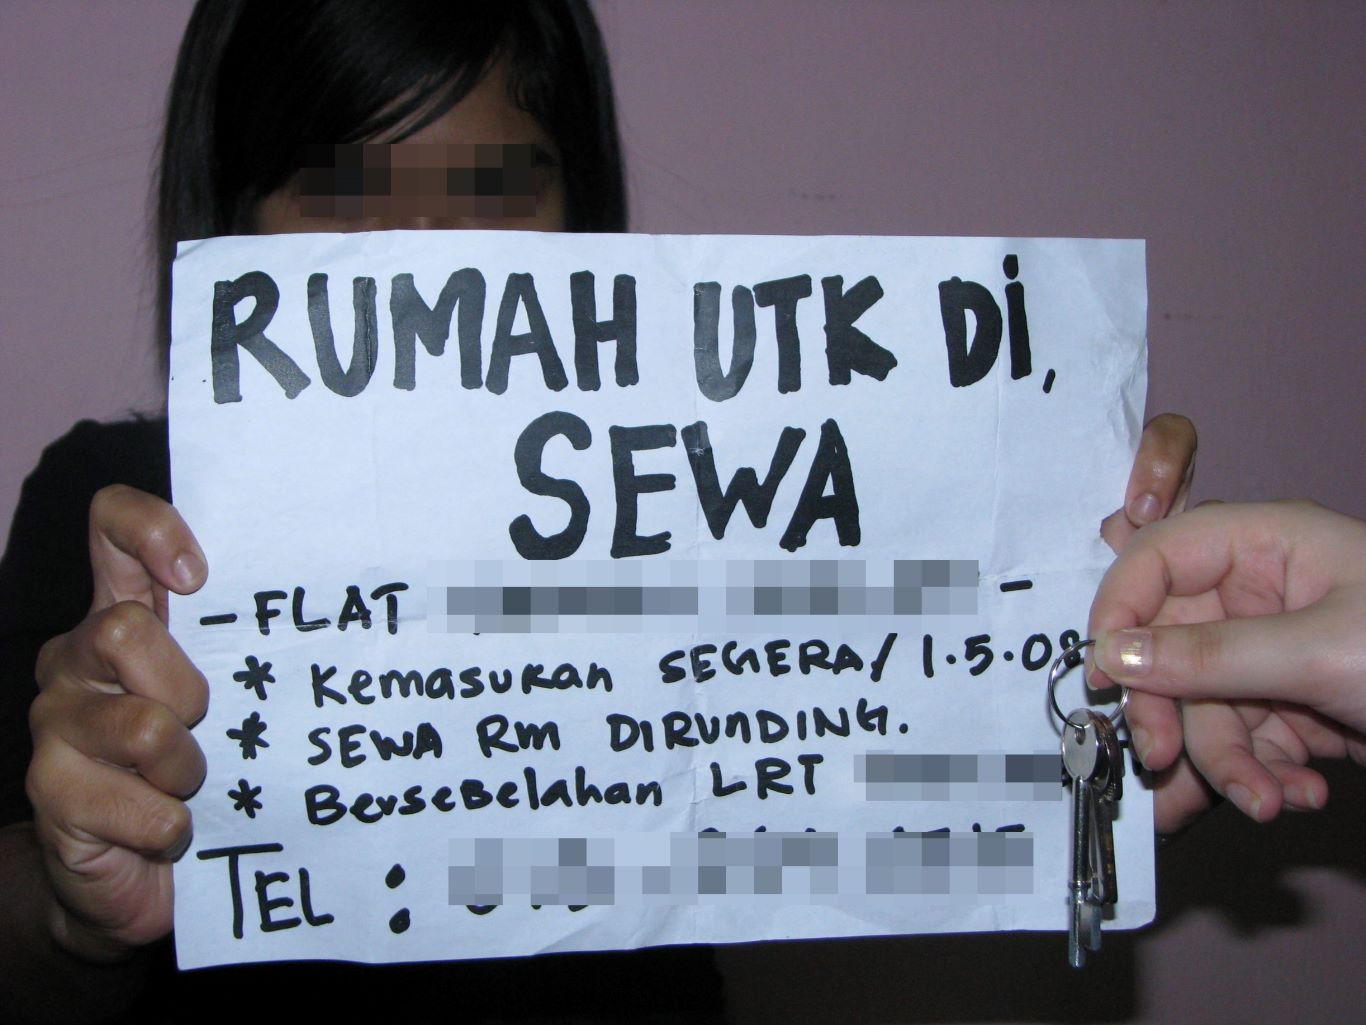 RUMAH UTK Di,
SEWA
- FLAT -
* Kemasukan SEGERA/ 1.5.08
* SEWA Rm DIRUNDING.
* BerseBelahan LRT
TEL :